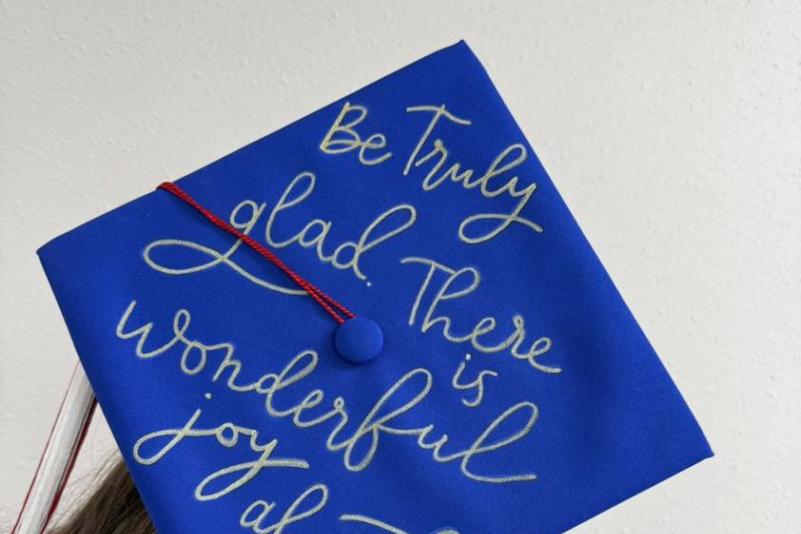 Be Truly
glad. There
is
wonderful
joy